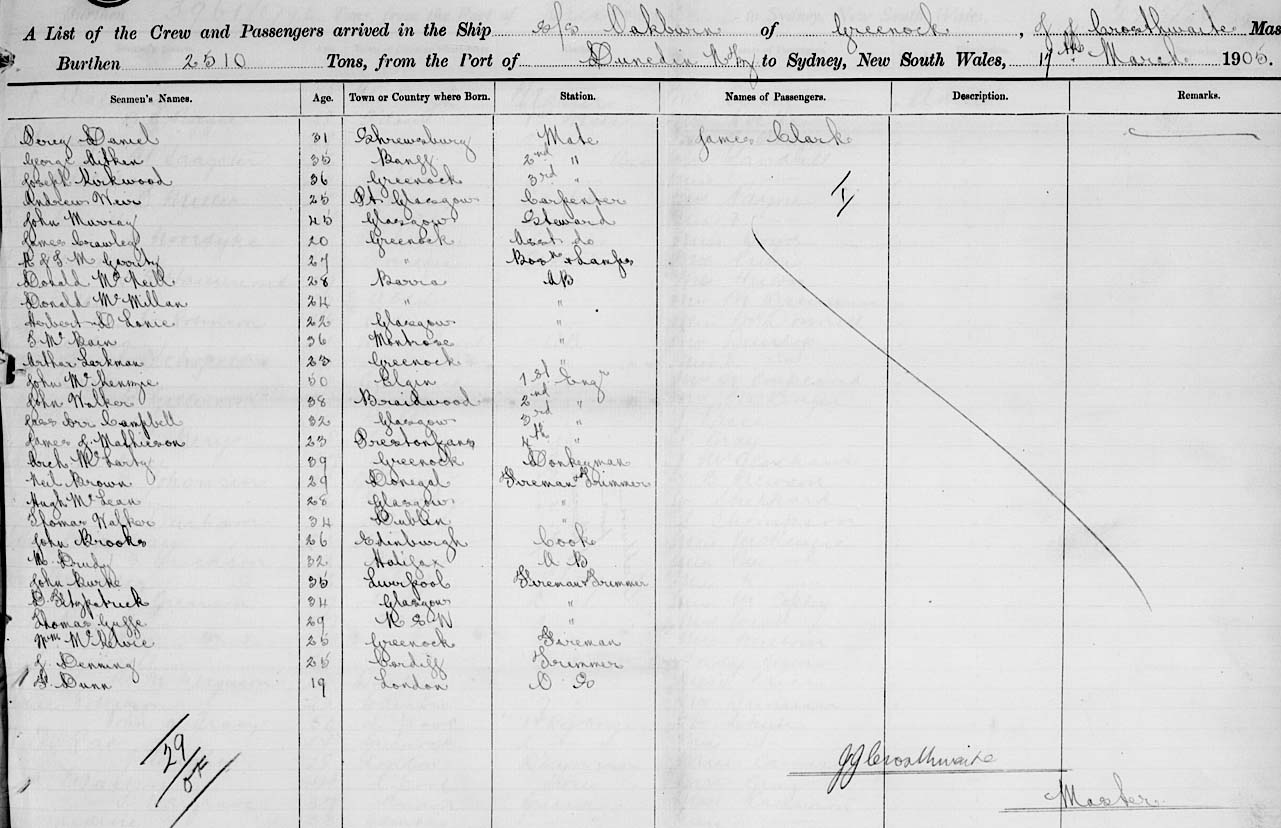 A List of the Crew and Passengers arrived in the Ship s/s Oakburn of Greenock, J J Crosthwaite Mas
Burthen 2510 Tons, from the Port of Dunedin to Sydney, New South Wales, 17th March 1906.
Seamen's Names. Age. Town or Country where Born. Station. Names of Passengers. Description. Remarks.
Percy Daniel 31 Shrewsbury Mate James Clark
George Aitken 35 Banff 2nd "
Joseph Kirkwood 36 Greenock 3rd "
Andrew Weir 25 Pt. Glasgow Carpenter
John Murray 45 Glasgow Steward
James Crawley 20 Greenock Asst do
Garrity 27 " Bosn & Lamps
Donald McNeill 28 Barra AB
Donald McMillan 24 " "
Herbert 22 Glasgow "
McBain 36 Montrose "
Arthur Lerkman 23 Greenock "
John McKenzie 50 Elgin 1st Engr
John Walker 38 Braidwood 2nd "
Jas Orr Campbell 32 Glasgow 3rd "
James J. Mathieson 23 Prestonpans 4th "
Arch McLarty 39 Greenock Donkeyman
Neil Brown 29 Donegal Fireman & Trimmer
Hugh McLean 28 Glasgow "
Thomas Walker 34 Dublin "
John Brooks 26 Edinburgh Cook
32 Halifax A B
John Burke 35 Liverpool Fireman & Trimmer
Fitzpatrick 34 Glasgow "
Thomas Guffe 29 N S W "
Wm McKelvie 25 Greenock Fireman
J. Denning 25 Cardiff Trimmer
F. Dunn 19 London O S
29
J J Crosthwaite
Master